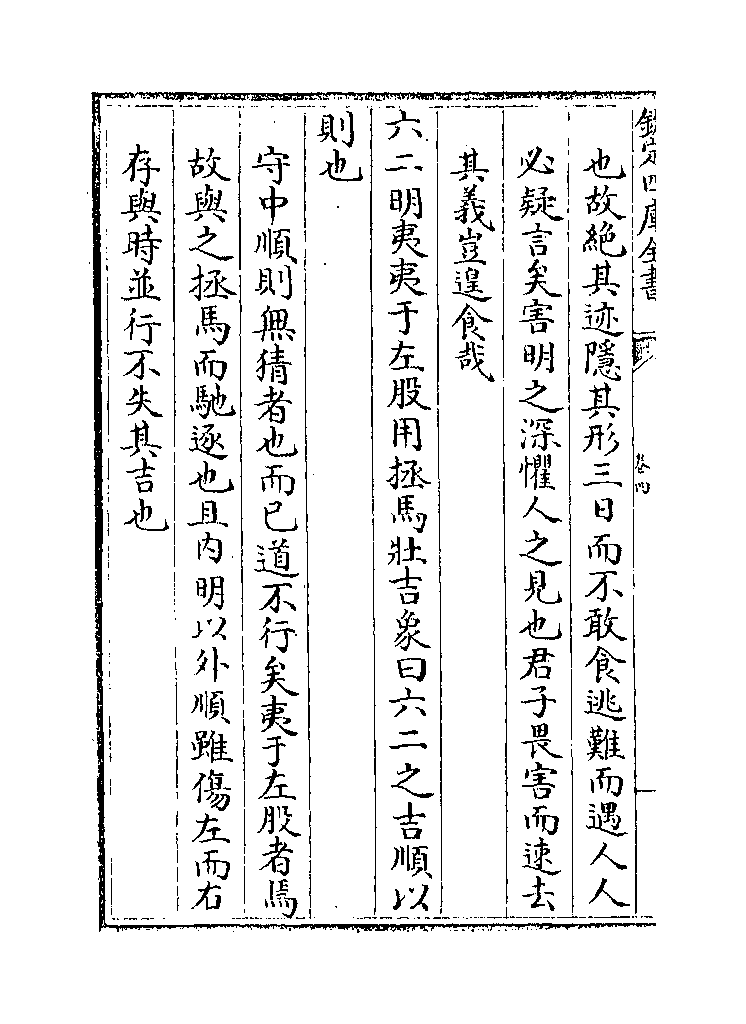 欽定四庫全書
卷四
也故絶其迹隱其形三日而不敢食逃難而遇人人
必疑言矣害明之深懼人之見也君子畏害而速去
其義豈遑食哉
六二明夷夷于左股用拯馬壯吉象曰六二之吉順以
則也
守中順則無猜者也而已道不行矣夷于左股者焉
故與之拯馬而馳逐也且内明以外順雖傷左而右
存與時並行不失其吉也